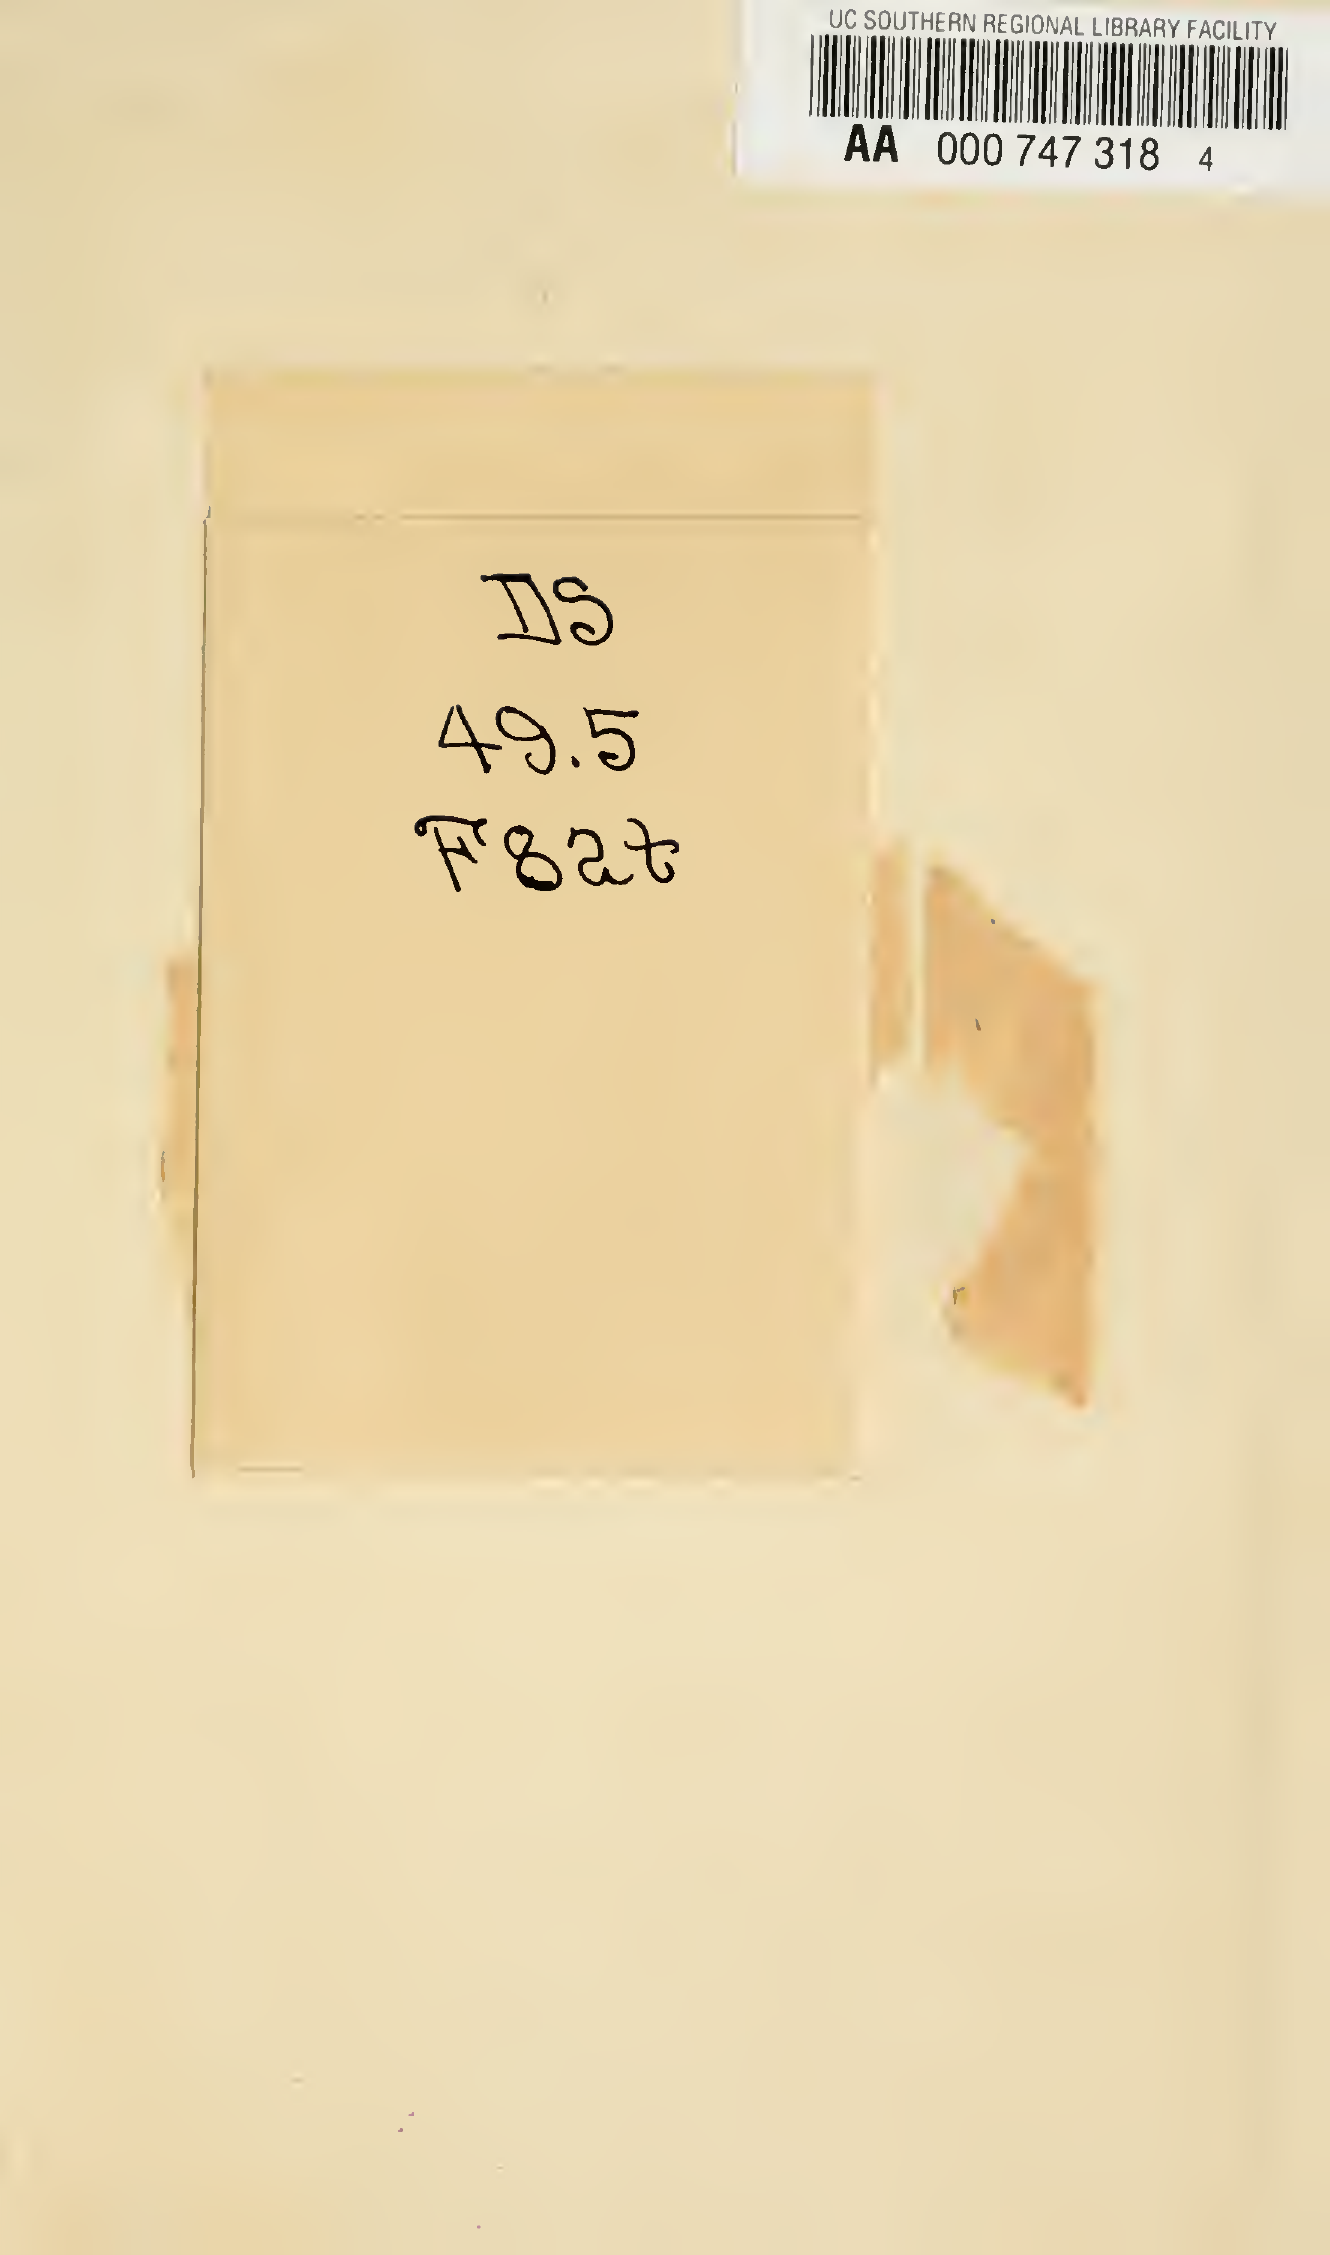 UC SOUTHERN REGIONAL LIBRARY FACILITY
AA 000 747 318 4
DS
49.5
F82t